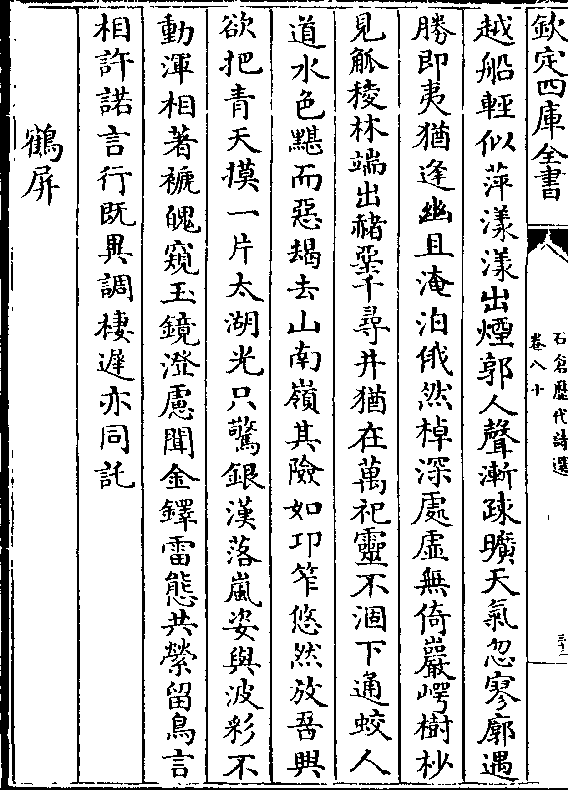 欽定四庫全書
石倉歷代詩選
卷八十
三十二
越船輕似萍漾漾出煙郭人聲漸疎曠天氣忽寥廓遇
勝即夷猶逢幽且淹泊俄然棹深處虛無倚巖崿樹杪
見觚稜林端出赭堊千尋井猶在萬祀靈不涸下通蛟人
道水色黮而惡朅去山南嶺其險如卭笮悠然放吾興
欲把青天摸一片太湖光只驚銀漢落嵐姿與波彩不
動渾相著褫魄窺玉鏡澄慮聞金鐸雷態共縈留鳥言
相許諾言行既異調棲遲亦同託
鶴屏